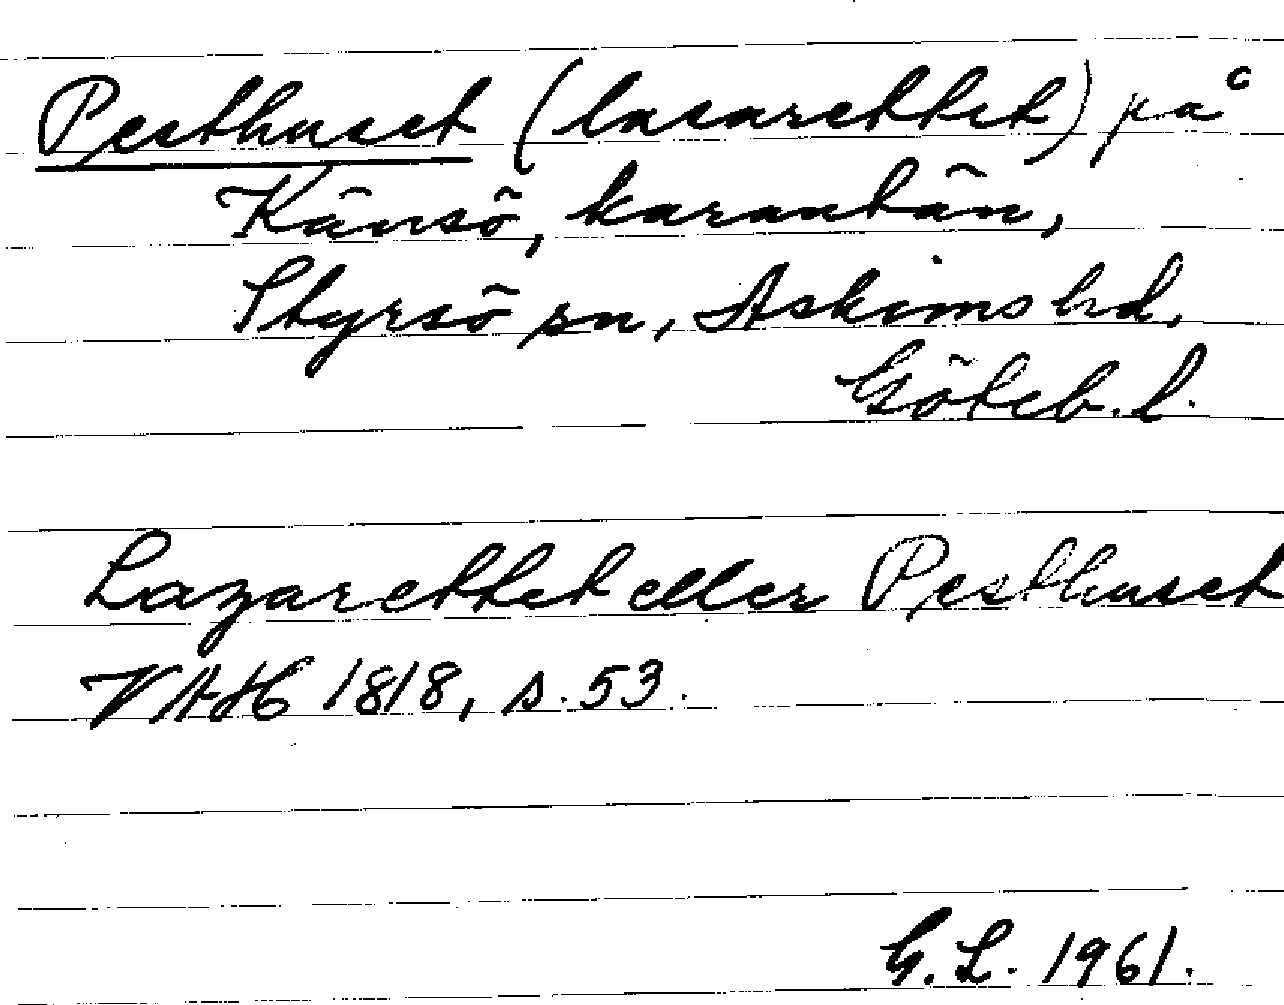 Pesthuset (lasarettet) på
Känsö, karantän,
Styrsö sn, Askims hd,
Göteb. l.
Lazarettet eller Pesthuset
VAH 1818, s. 53.
G. L. 1961.